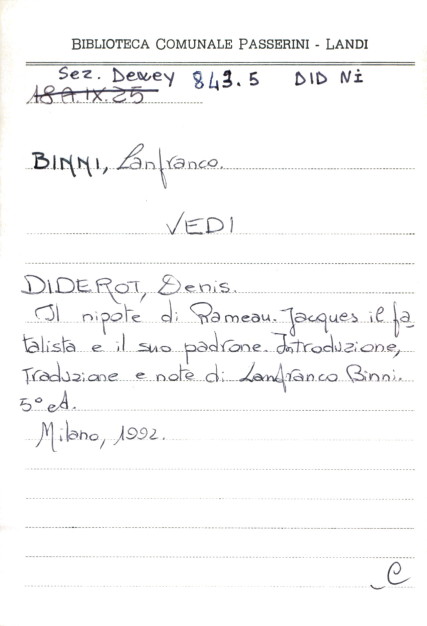 BIBLIOTECA COMUNALE PASSERINI - LANDI
Sez. Dewey 843.5 DID Ni
18 A.IX.25
BINNI, Lanfranco.
VEDI
DIDEROT, Denis.
Il nipote di Rameau. Jacques il fa_
talista e il suo padrone. Introduzione,
Traduzione e note di Lanfranco Binni.
5° ed.
Milano, 1992.
_C